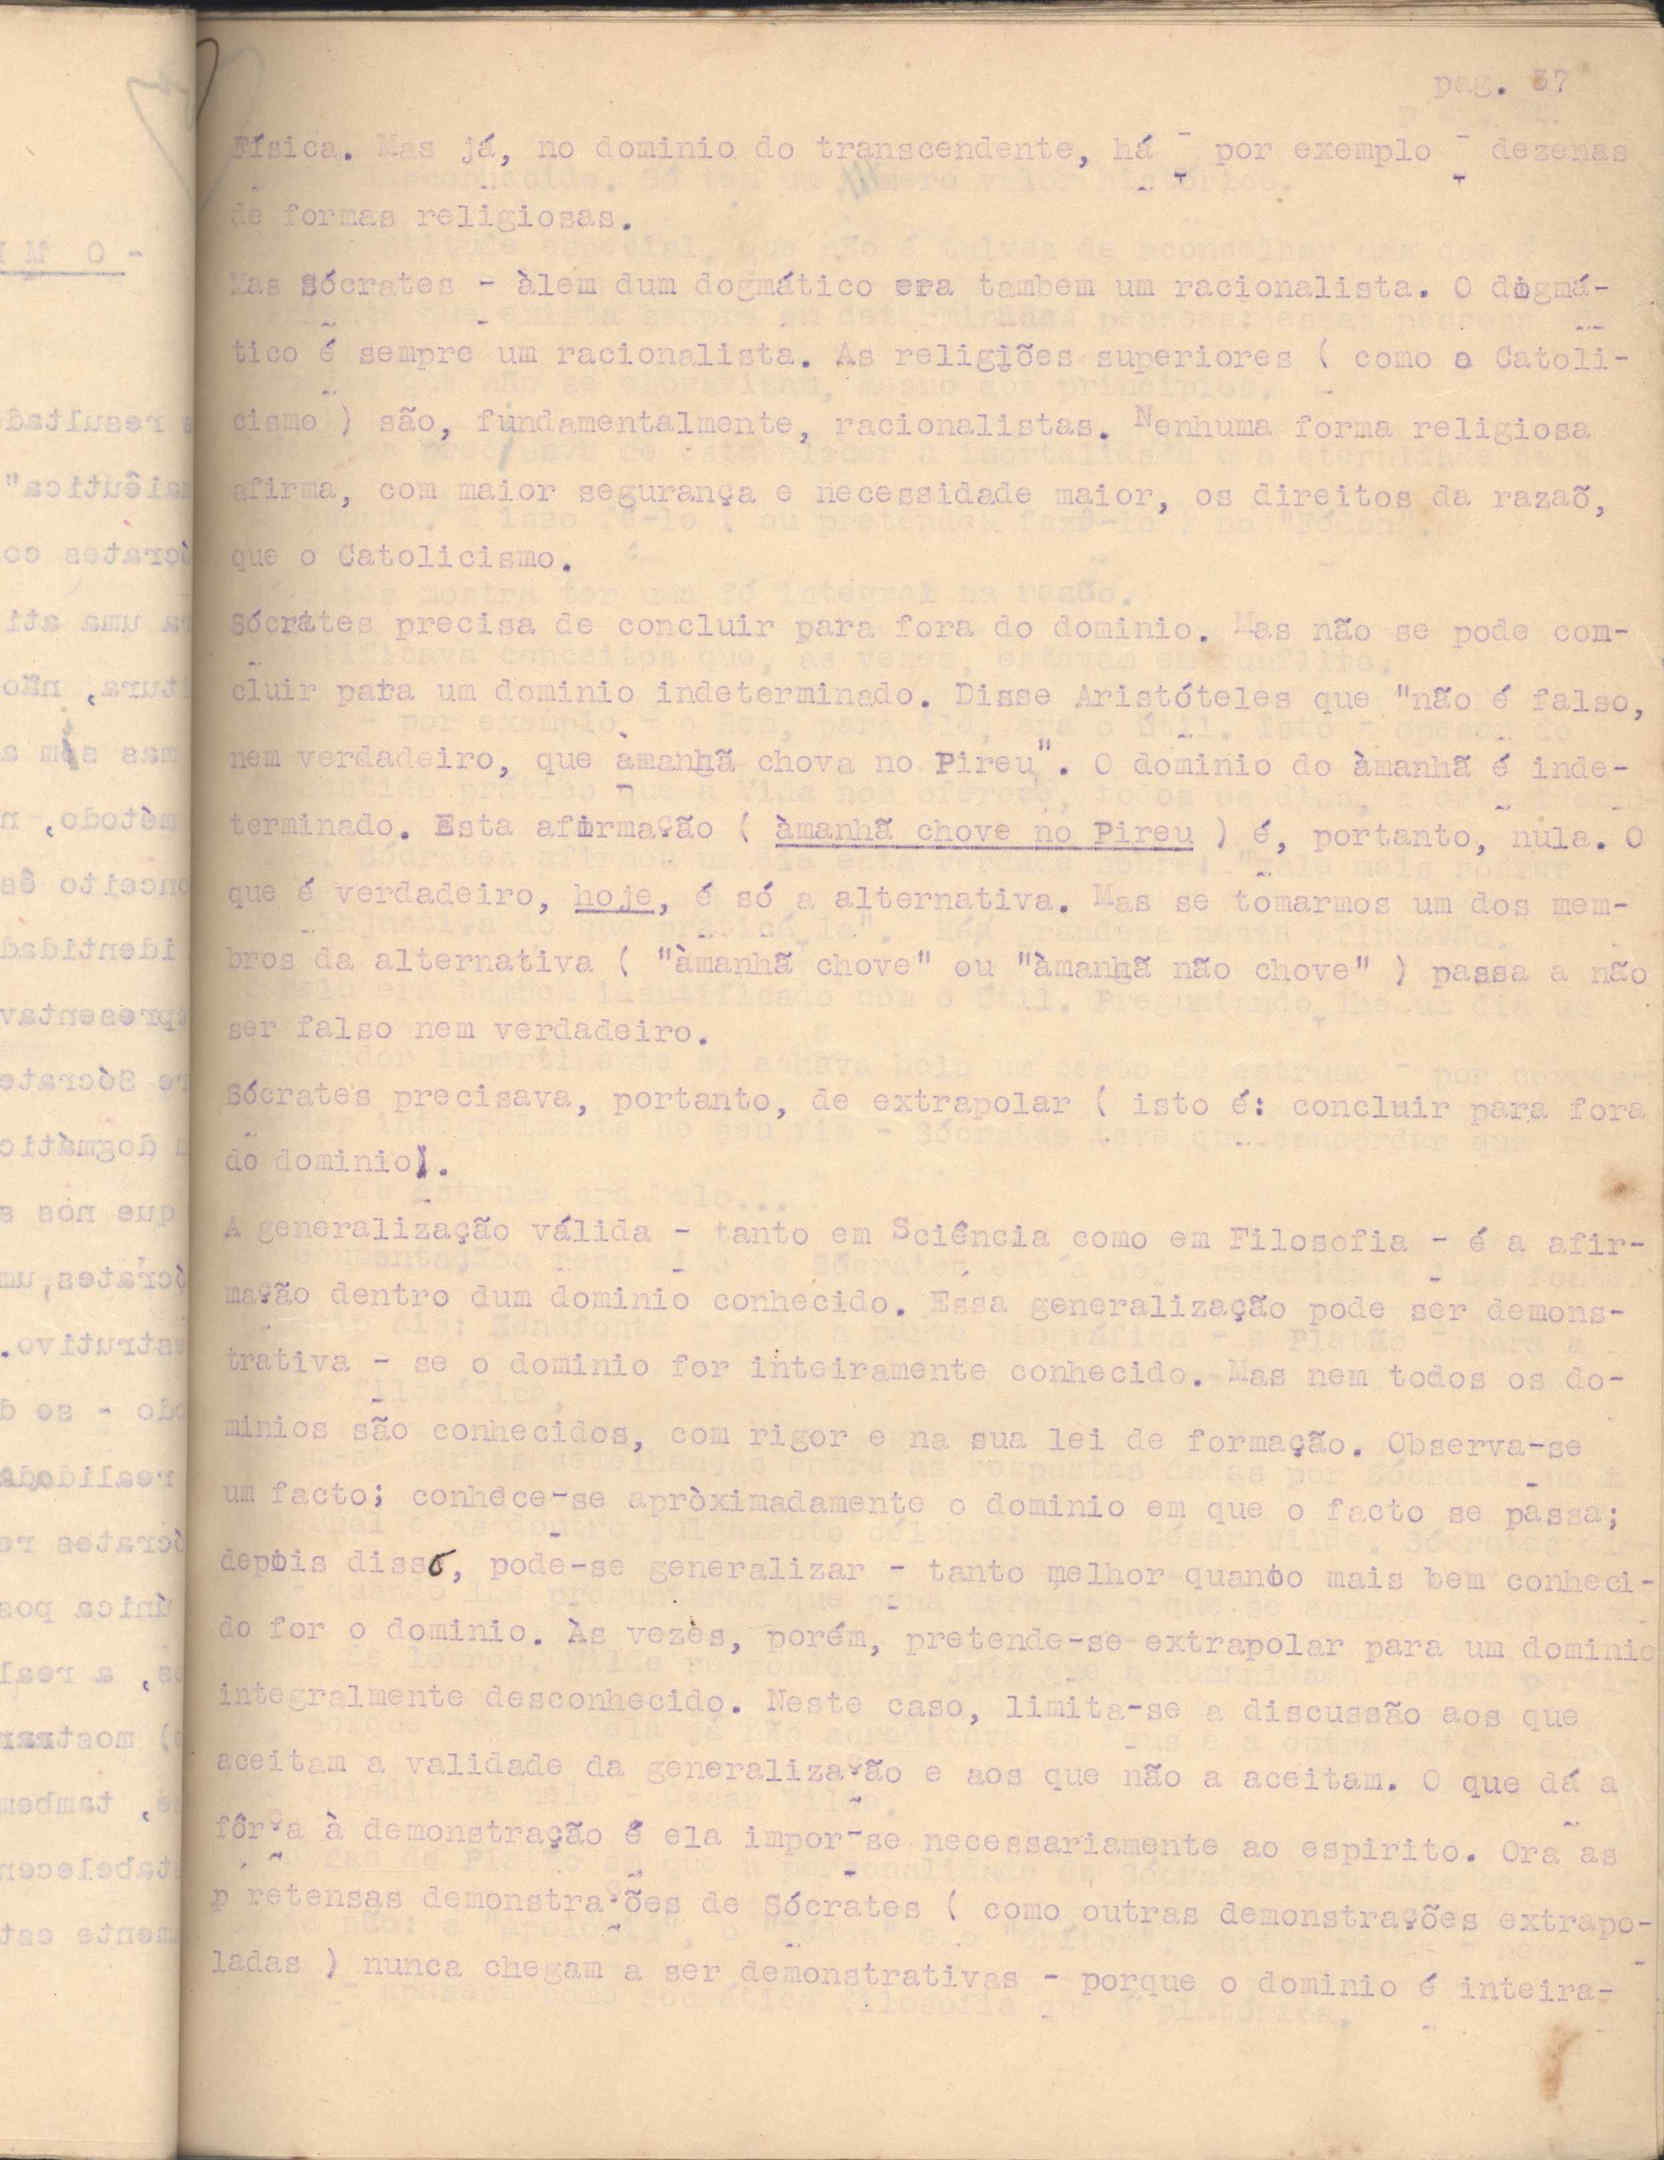 pag. 37
Física. Mas já, no dominio do transcendente, há - por exemplo - dezenas
de formas religiosas.
Mas Sócrates - àlem dum dogmático era tambem um racionalista. O dogmá-
tico é sempre um racionalista. As religiões superiores ( como o Catoli-
cismo ) são, fundamentalmente, racionalistas. Nenhuma forma religiosa
afirma, com maior segurança e necessidade maior, os direitos da razaõ,
que o Catolicismo.
Sócrates precisa de concluir para fora do dominio. Mas não se pode com-
cluir para um dominio indeterminado. Disse Aristóteles que "não é falso,
nem verdadeiro, que àmanhã chova no Pireu". O dominio do àmanhã é inde-
terminado. Esta afirmação ( àmanhã chove no Pireu ) é, portanto, nula. O
que é verdadeiro, hoje, é só a alternativa. Mas se tomarmos um dos mem-
bros da alternativa ( "àmanhã chove" ou "àmanhã não chove" ) passa a não
ser falso nem verdadeiro.
Sócrates precisava, portanto, de extrapolar ( isto é: concluir para fora
do dominio).
A generalização válida - tanto em Sciência como em Filosofia - é a afir-
mação dentro dum dominio conhecido. Essa generalização pode ser demons-
trativa - se o dominio for inteiramente conhecido. Mas nem todos os do-
minios são conhecidos, com rigor e na sua lei de formação. Observa-se
um facto; conhece-se apròximadamente o dominio em que o facto se passa;
depois disso, pode-se generalizar - tanto melhor quanto mais bem conheci-
do for o dominio. Às vezes, porém, pretende-se extrapolar para um dominio
integralmente desconhecido. Neste caso, limita-se a discussão aos que
aceitam a validade da generalização e aos que não a aceitam. O que dá a
fôrça à demonstração é ela impor-se necessariamente ao espirito. Ora as
p retensas demonstrações de Sócrates ( como outras demonstrações extrapo-
ladas ) nunca chegam a ser demonstrativas - porque o dominio é inteira-